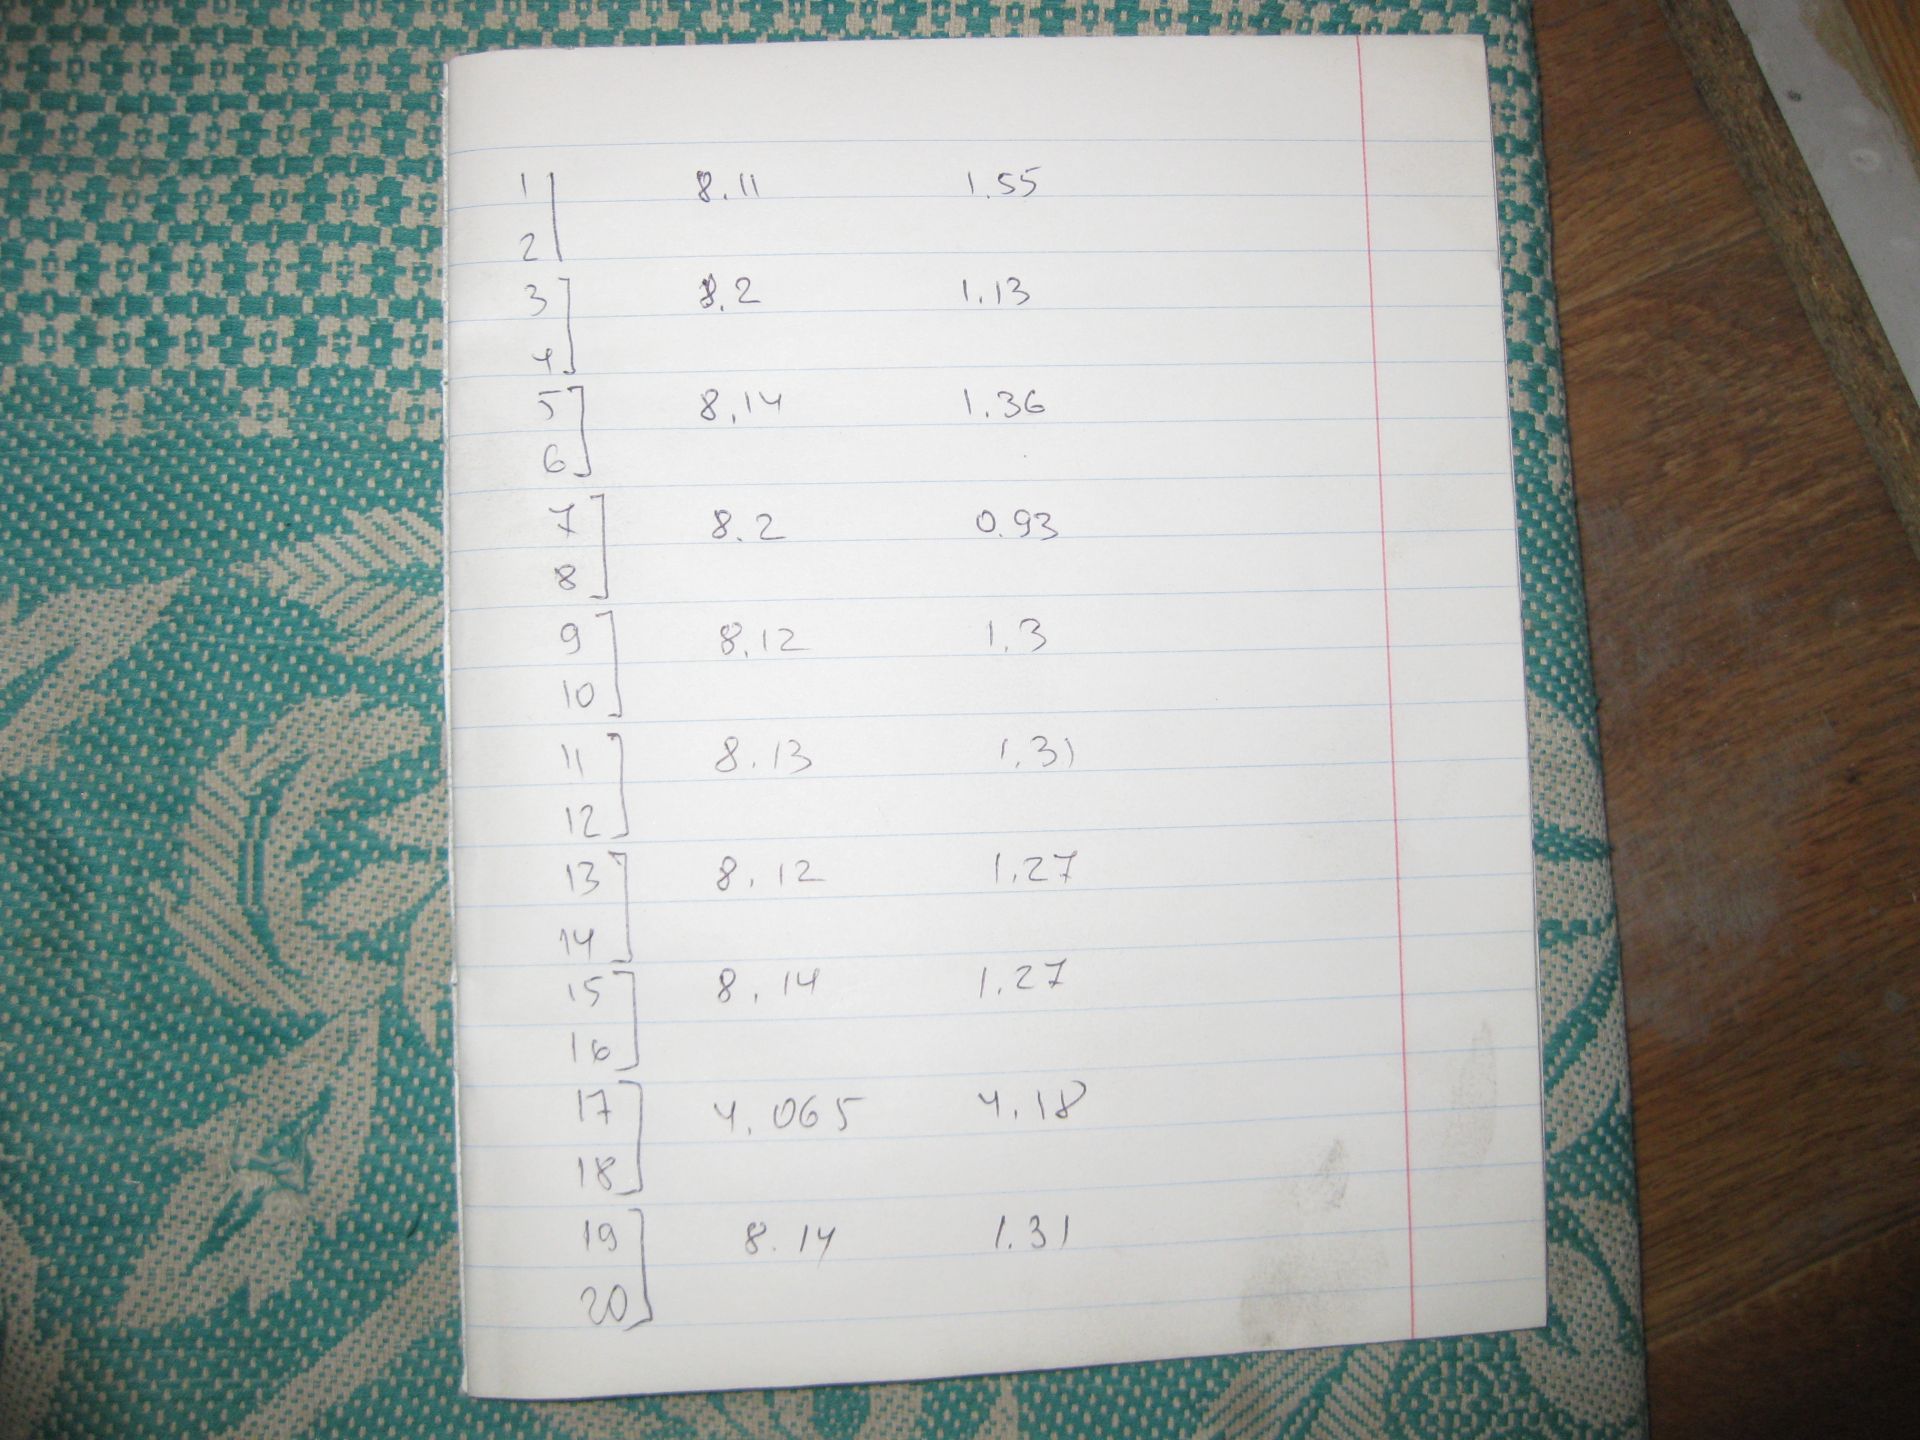 1] 8.11 1.55
2
3] 8.2 1.13
4
5] 8.14 1.36
6
7] 8.2 0.93
8
9] 8.12 1.3
10
11] 8.13 1.31
12
13] 8.12 1.27
14
15] 8.14 1.27
16
17] 4.065 4.18
18
19] 8.14 1.31
20